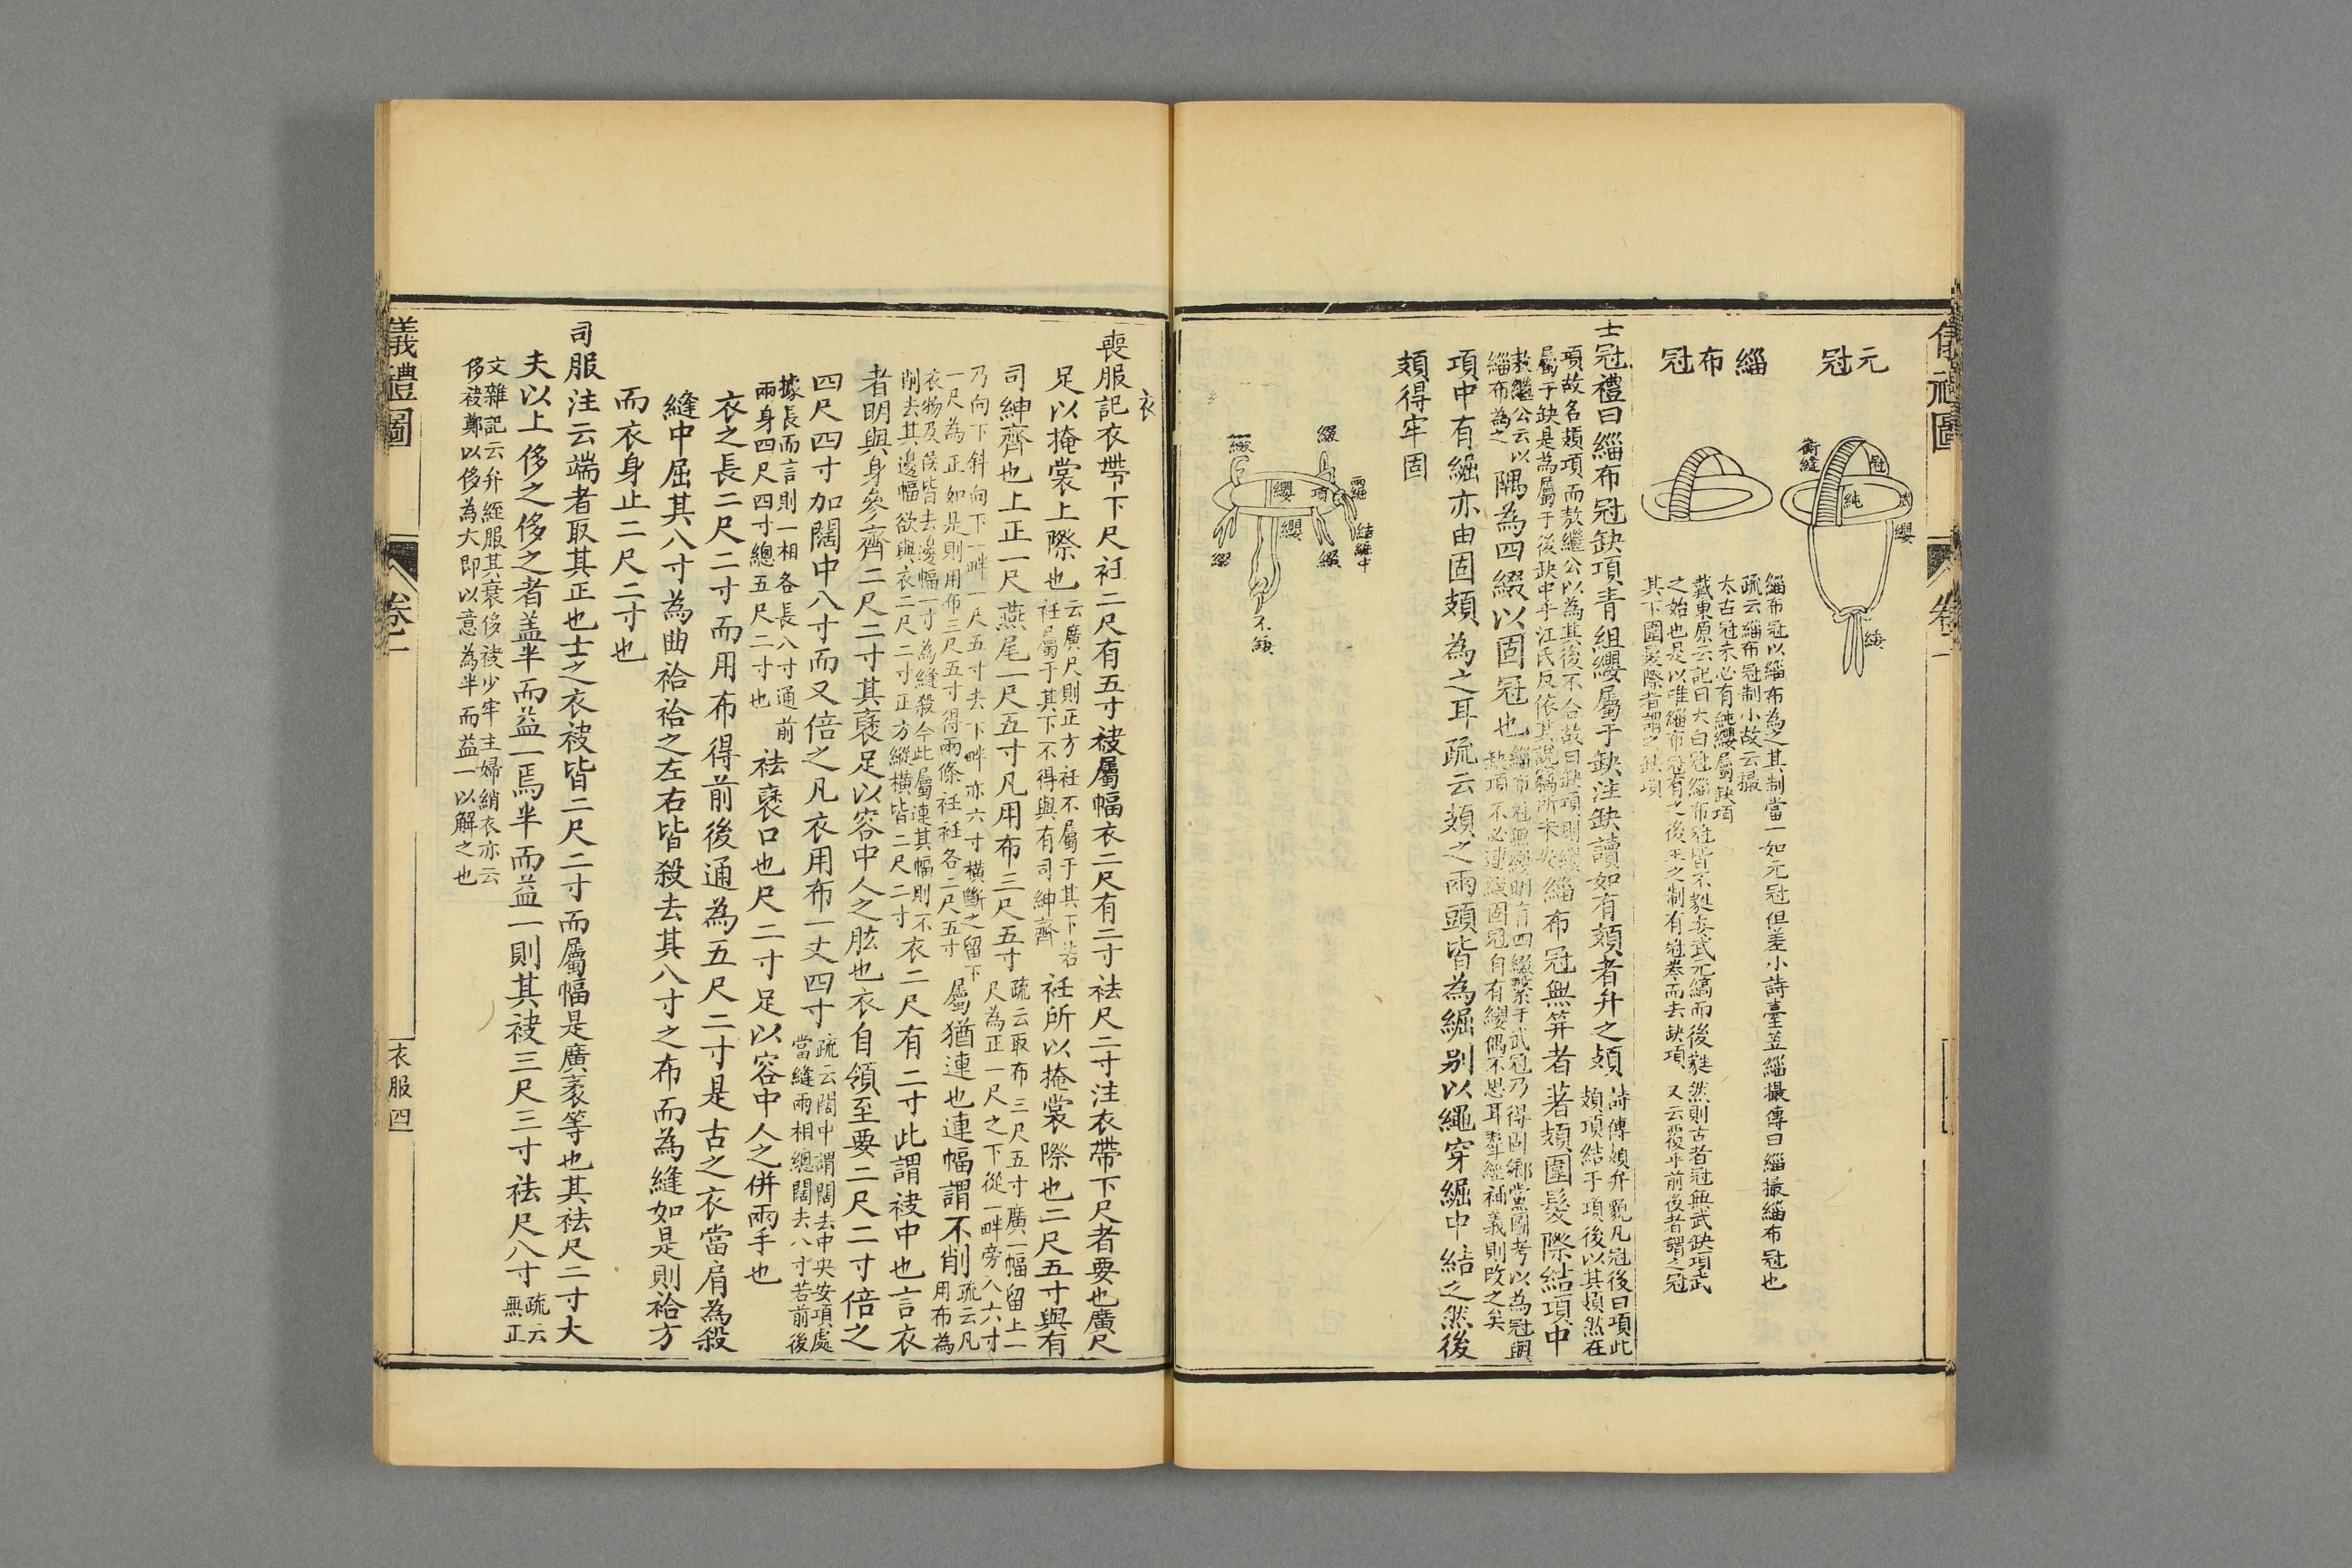 儀禮圖
卷二
元冠
緇布冠
衡縫
冠
純
武
纓
緌
緇布冠以緇布為之其制當一如元冠但差小詩臺笠緇撮傳曰緇撮緇布冠也
疏云緇布冠制小故云撮
太古冠未必有純纓屬缺項
戴東原云記曰大白冠緇布冠皆不蕤委武元縞而後蕤然則古者冠無武缺項武
之始也是以唯緇布冠有之後王之制有冠卷而去缺項 又云覆乎前後者謂之冠
其下圍髮際者謂之缺項
士冠禮曰緇布冠缺項青組纓屬于缺注缺讀如有頍者弁之頍
詩傳頍弁貌凡冠後曰項此
頍項結于項後以其頍然在
項故名頍項而敖繼公以為其後不合故曰缺項則
屬于缺是為屬于後缺中乎江氏反依其說竊所未安
緇布冠無笄者著頍圍髮際結項中
敖繼公云以
緇布為之
隅為四綴以固冠也
緇布冠無
明有四綴繫于武冠乃得固鄉黨圖考以為冠與
缺項不必連綴固冠自有纓偶不思耳羣經補義則改之矣
項中有䋎亦由固頍為之耳疏云頍之兩頭皆為䋎别以繩穿䋎中結之然後
頍得牢固
綴
兩䋎
結䋎中
項
纓
綴
綴
纓
綴
衣
喪服記衣帶下尺衽二尺有五寸袂屬幅衣二尺有二寸袪尺二寸注衣帶下尺者要也廣尺
足以掩裳上際也
云廣尺則正方衽不屬于其下若
衽屬于其下不得與有司紳齊
衽所以掩裳際也二尺五寸與有
司紳齊也上正一尺燕尾一尺五寸凡用布三尺五寸
疏云取布三尺五寸廣一幅留上一
尺為正一尺之下從一畔旁入六寸
乃向下斜向下一畔一尺五寸去下畔亦六寸橫斷之留下
一尺為正如是則用布三尺五寸得兩條衽衽各二尺五寸
屬猶連也連幅謂不削
疏云凡
用布為
衣物及侯皆去邊幅一寸為縫殺今此屬連其幅則不
削去其邊幅欲與衣二尺二寸正方縱橫皆二尺二寸
衣二尺有二寸此謂袂中也言衣
者明與身參齊二尺二寸其袤足以容中人之肱也衣自領至要二尺二寸倍之
四尺四寸加闊中八寸而又倍之凡衣用布一丈四寸
疏云闊中謂闊去中央安項處
當縫兩相總闊去八寸若前後
據長而言則一相各長八寸通前
兩身四尺四寸總五尺二寸也
袪袤口也尺二寸足以容中人之併兩手也
衣之長二尺二寸而用布得前後通為五尺二寸是古之衣當肩為殺
縫中屈其八寸為曲袷袷之左右皆殺去其八寸之布而為縫如是則袷方
而衣身止二尺二寸也
司服注云端者取其正也士之衣袂皆二尺二寸而屬幅是廣袤等也其袪尺二寸大
夫以上侈之侈之者蓋半而益一焉半而益一則其袂三尺三寸袪尺八寸
疏云
無正
文雜記云弁絰服其衰侈袂少牢主婦綃衣亦云
侈袂鄭以侈為大即以意為半而益一以解之也
儀禮圖
卷二
衣服四